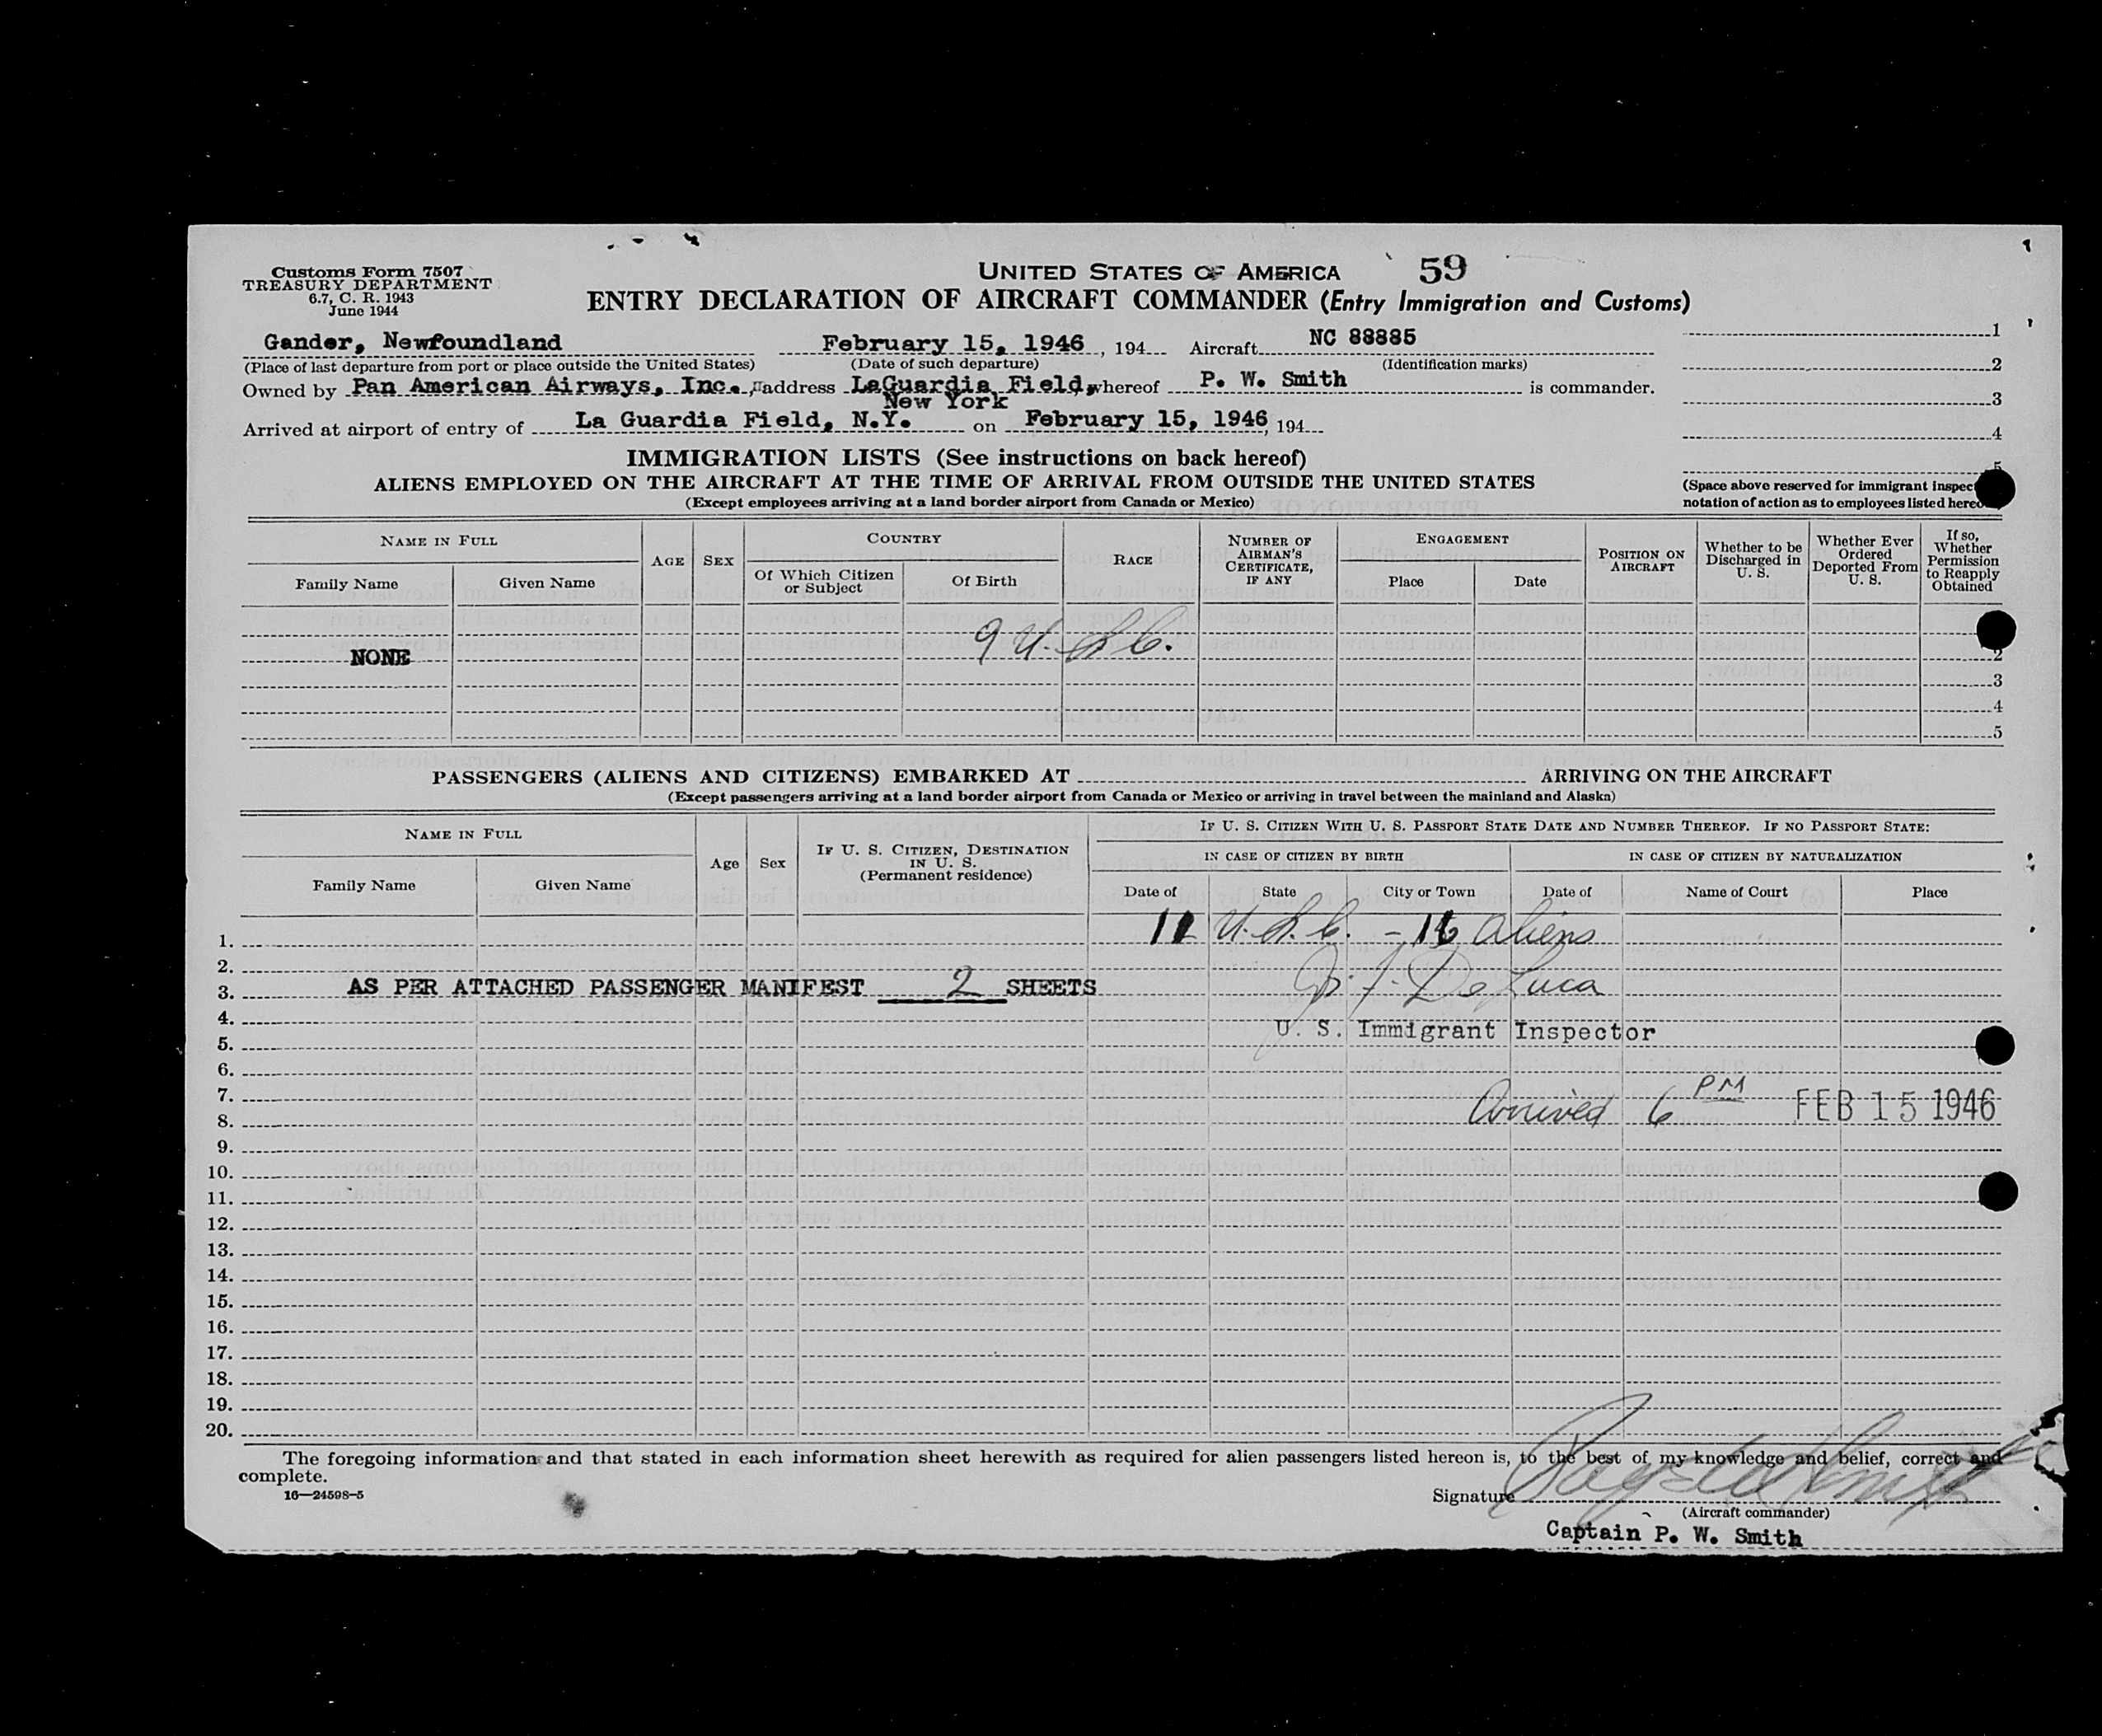 Customs Form 7507
TREASURY DEPARTMENT
6.7, C. R. 1943
June 1944
UNITED STATES OF AMERICA
59
ENTRY DECLARATION OF AIRCRAFT COMMANDER (Entry Immigration and Customs)
Gander, Newfoundland February 15, 1946, 194 Aircraft NC 88885
(Place of last departure from port or place outside the United States) (Date of such departure) (Identification marks)
Owned by Pan American Airways, Inc., address LaGuardia Field, whereof P. W. Smith is commander.
New York
Arrived at airport of entry of La Guardia Field, N.Y. on February 15, 1946, 194
1
2
3
4
5
IMMIGRATION LISTS (See instructions on back hereof)
ALIENS EMPLOYED ON THE AIRCRAFT AT THE TIME OF ARRIVAL FROM OUTSIDE THE UNITED STATES
(Except employees arriving at a land border airport from Canada or Mexico)
(Space above reserved for immigrant inspec
notation of action as to employees listed hereo
NAME IN FULL
Family Name Given Name
AGE SEX
COUNTRY
Of Which Citizen or Subject
Of Birth
RACE
NUMBER OF AIRMAN'S CERTIFICATE, IF ANY
ENGAGEMENT
Place Date
POSITION ON AIRCRAFT
Whether to be Discharged in U. S.
Whether Ever Ordered Deported From U. S.
If so, Whether Permission to Reapply Obtained
9 U. S. C.
NONE
2
3
4
5
PASSENGERS (ALIENS AND CITIZENS) EMBARKED AT ARRIVING ON THE AIRCRAFT
(Except passengers arriving at a land border airport from Canada or Mexico or arriving in travel between the mainland and Alaska)
NAME IN FULL
Family Name Given Name
Age Sex
IF U. S. CITIZEN, DESTINATION IN U. S.
(Permanent residence)
IF U. S. CITIZEN WITH U. S. PASSPORT STATE DATE AND NUMBER THEREOF. IF NO PASSPORT STATE:
IN CASE OF CITIZEN BY BIRTH IN CASE OF CITIZEN BY NATURALIZATION
Date of State City or Town Date of Name of Court Place
11 U. S. C. - 16 Aliens
1.
2.
3. AS PER ATTACHED PASSENGER MANIFEST 2 SHEETS
De Luca
4.
U. S. Immigrant Inspector
5.
6.
7.
Arrived 6 PM FEB 15 1946
8.
9.
10.
11.
12.
13.
14.
15.
16.
17.
18.
19.
20.
The foregoing information and that stated in each information sheet herewith as required for alien passengers listed hereon is, to the best of my knowledge and belief, correct and
complete.
16—24598-5
Signature
(Aircraft commander)
Captain P. W. Smith